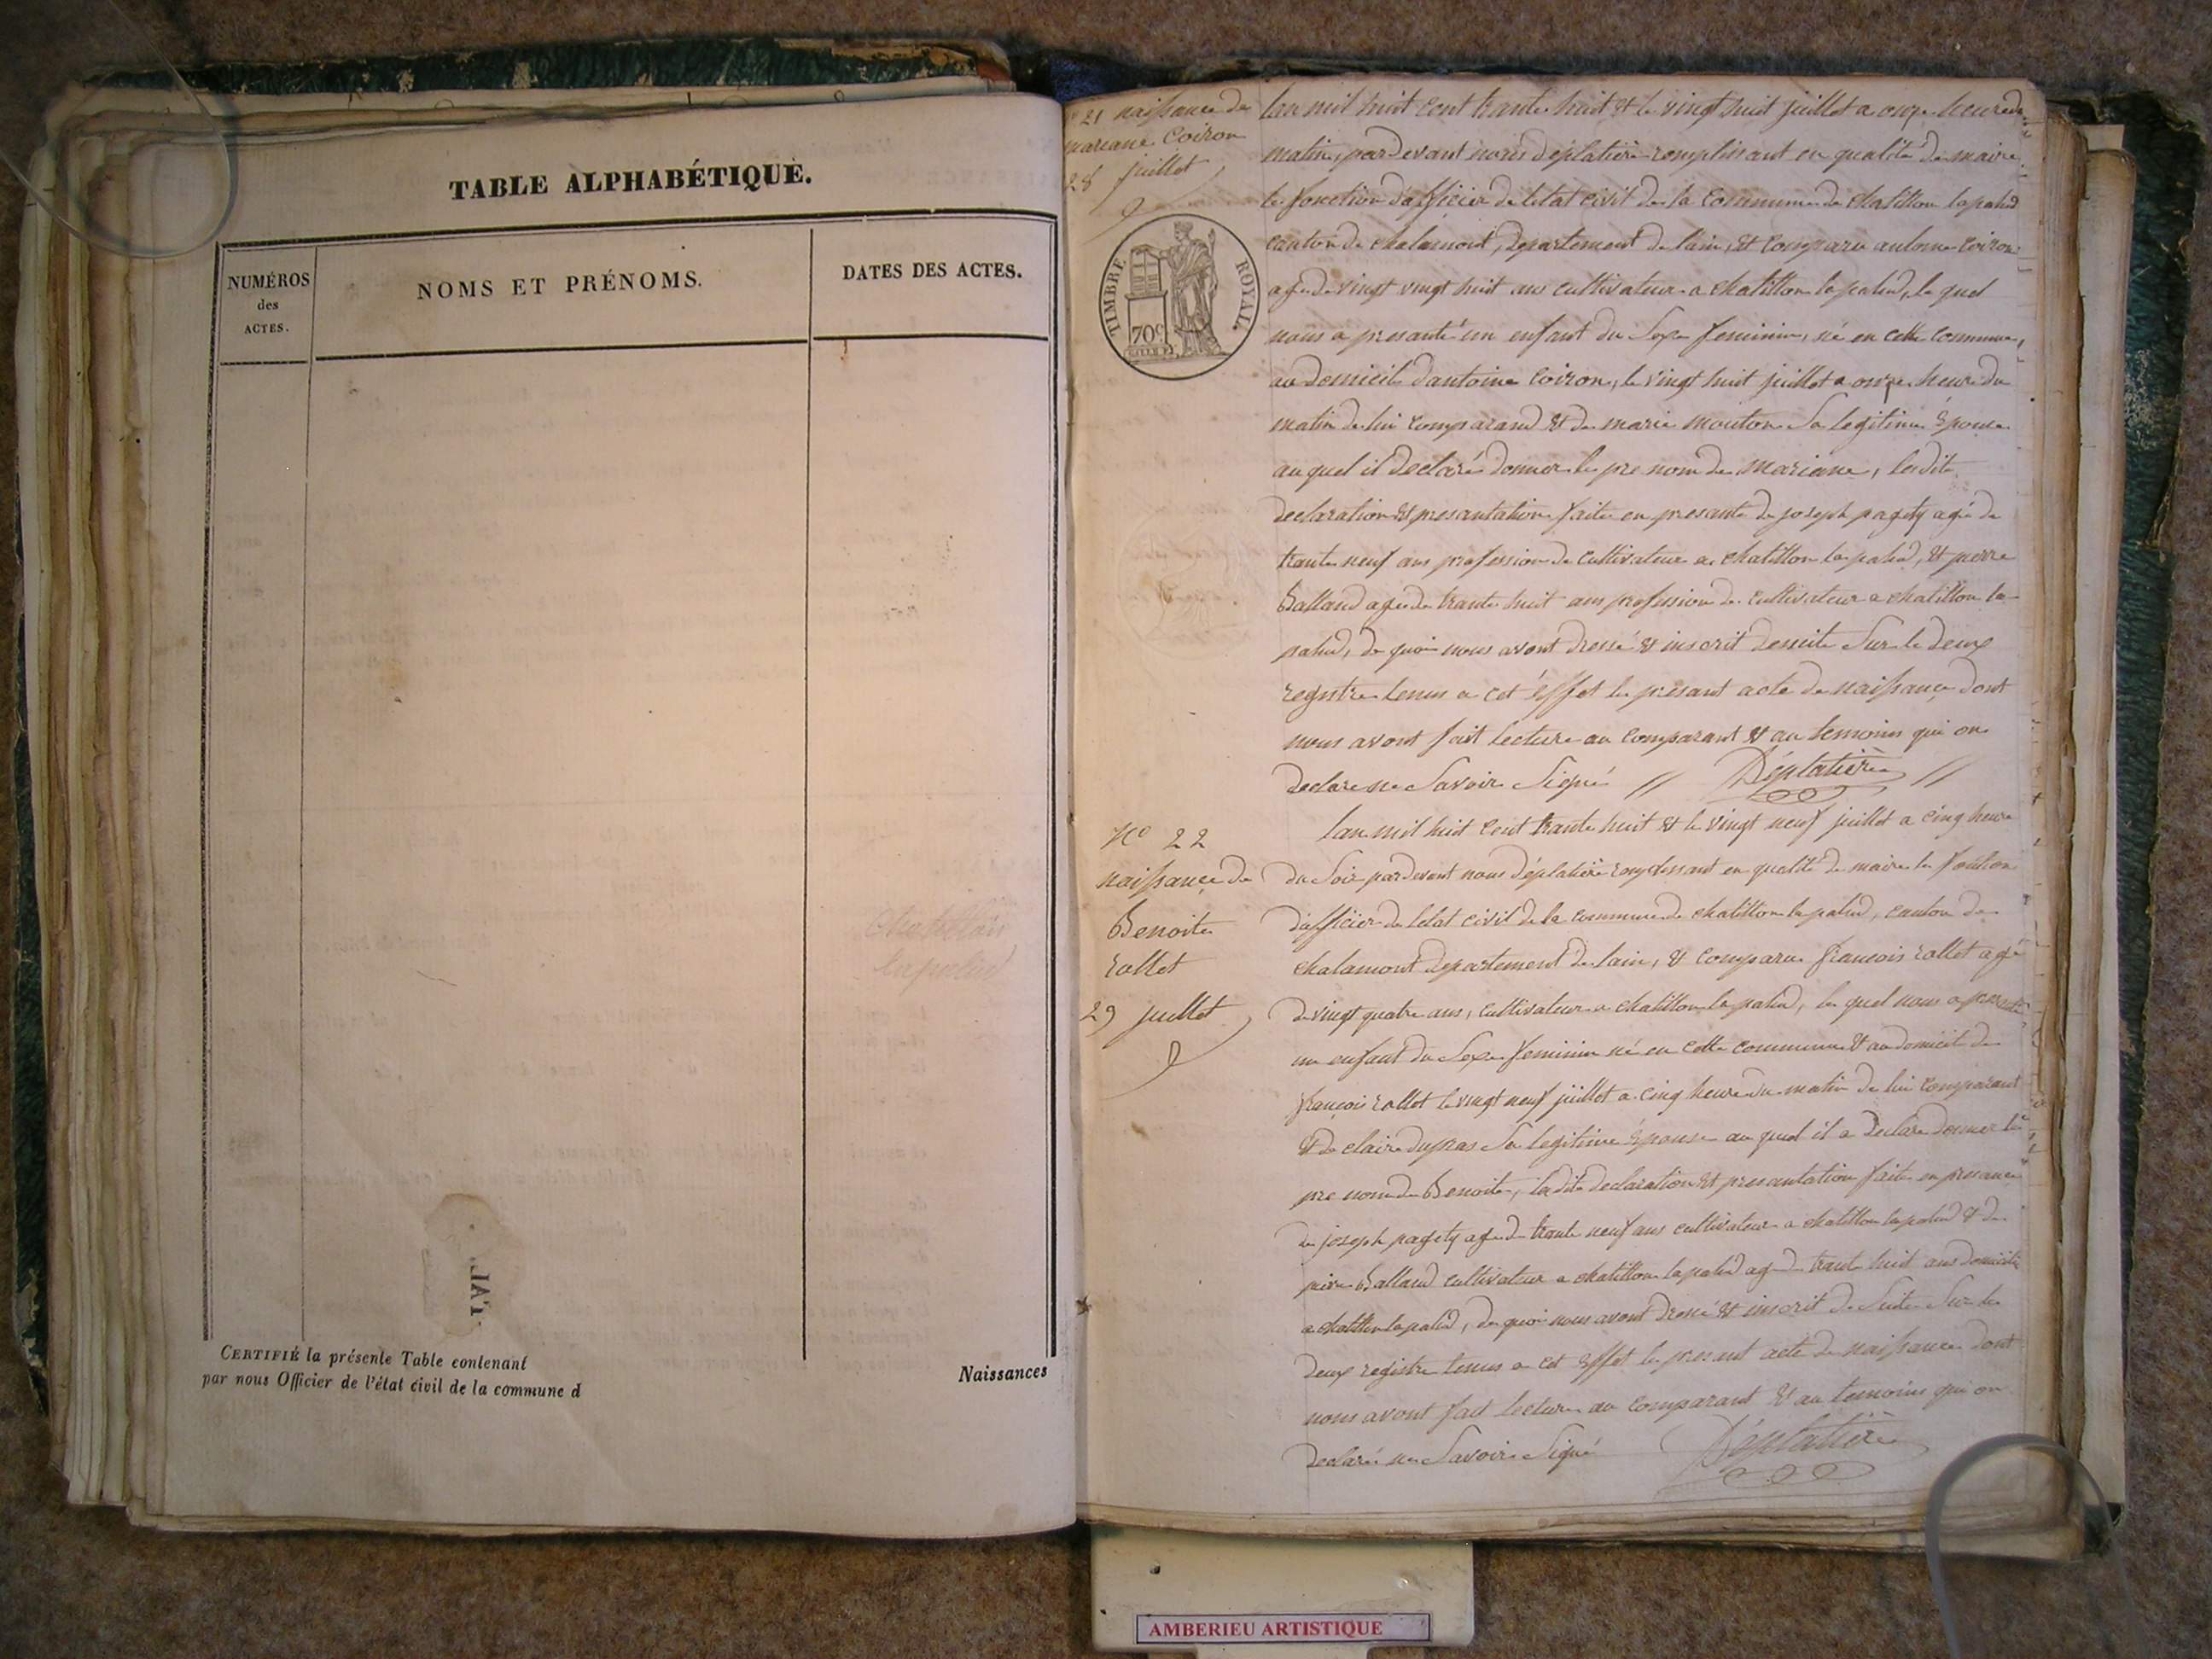 TABLE ALPHABÉTIQUE.
NUMÉROS
des
ACTES.
NOMS ET PRÉNOMS.
DATES DES ACTES.
Chatillon
lapalud
CERTIFIÉ la présente Table contenant
Naissances
par nous Officier de l'état civil de la commune d
21 naissance de
mariane Coiron
28 juillet
TIMBRE ROYAL.
70 c
lan mil huit cent trante huit & le vingt huit juillet a onze heure du
matin, pardevant nous déplatière remplissant en qualité de maire
le fonction d'afficier de letat civil de la commune de chatillon lapalud
canton de chalamont, departement de lain, & comparu antoine coiron
age de vingt vingt huit ans cultivateur a chatillon la palud, le quel
nous a presanté un enfant du sexe feminin, né en cette commune,
au domicile dantoine coiron, le vingt huit juillet a onze heure du
matin de lui comparand & de marie mouton sa legitime épouse
au quel il declaré donner le pre nom de mariane, lesdite
declaration & presantation faite en presante de joseph pagety agé de
trante neuf ans profession de cultivateur a chatillon la palud, & pierre
Balland age de trante huit ans profession de cultivateur a chatillon la
palud, de quoi nous avont dressé & inscrit desuite sur le deux
registre tenus a cet éffet le présant acte de naissance dont
nous avont fait lecture au comparant & au temoins qui on
declare ne savoir signé // Déplatière //
N° 22
naissance de
Benoite
rollet
29 juillet
lan mil huit cent trante huit & le vingt neuf juillet a cinq heure
du soir pardevant nous déplatière remplissant en qualité de maire le fontion
d'afficier de letat civil de la commune de chatillon la palud, canton de
chalamont departement de lain, & comparu françois rollet agé
de vingt quatre ans, cultivateur a chatillon la palud, le quel nous a presanté
un enfant du sexe feminin né en cette commune & au domicile de
françois rollet le vingt neuf juillet a cinq heure du matin de lui comparant
& de claire dupras sa legitime épouse au quel il a declare donner le
pre nom de Benoite, ladite declaration & presantation faite en presance
de joseph pagety age de trante neuf ans cultivateur a chatillon lapalud & de
pierre Balland cultivateur a chatillon la palud agé de trante huit ans domicilié
a chatillon la palud, de quoi nous avont dressé & inscrit de suite sur le
deux registre tenus a cet éffet le presant acte de naissance dont
nous avont fait lecture au comparant & au temoins qui on
declaré ne savoir signé Déplatière
AMBERIEU ARTISTIQUE